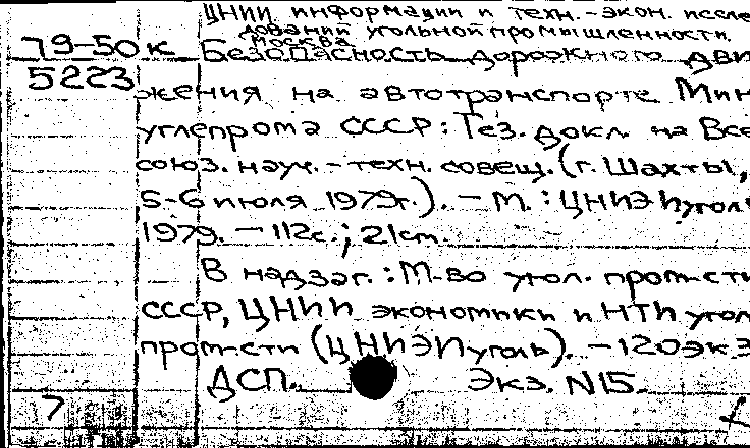 ЦНИИ информации и техн.-экон. иссле
дований угольной промышленности.
Москва
79-50к Безопасность дорожного дви
5223
жения на автотранспорте Мин
углепрома СССР: Тез. докл. на Все
союз. науч.-техн. совещ. (г. Шахты,
5-6 июля 1979г.). - М.: ЦНИЭИуголь
1979. - 112с.; 21см.
В надзаг.: М-во угол. пром-сти
СССР, ЦНИИ экономики и НТИ угол
пром-сти (ЦНИЭИуголь). - 120экз
ДСП. Экз. N15.
7